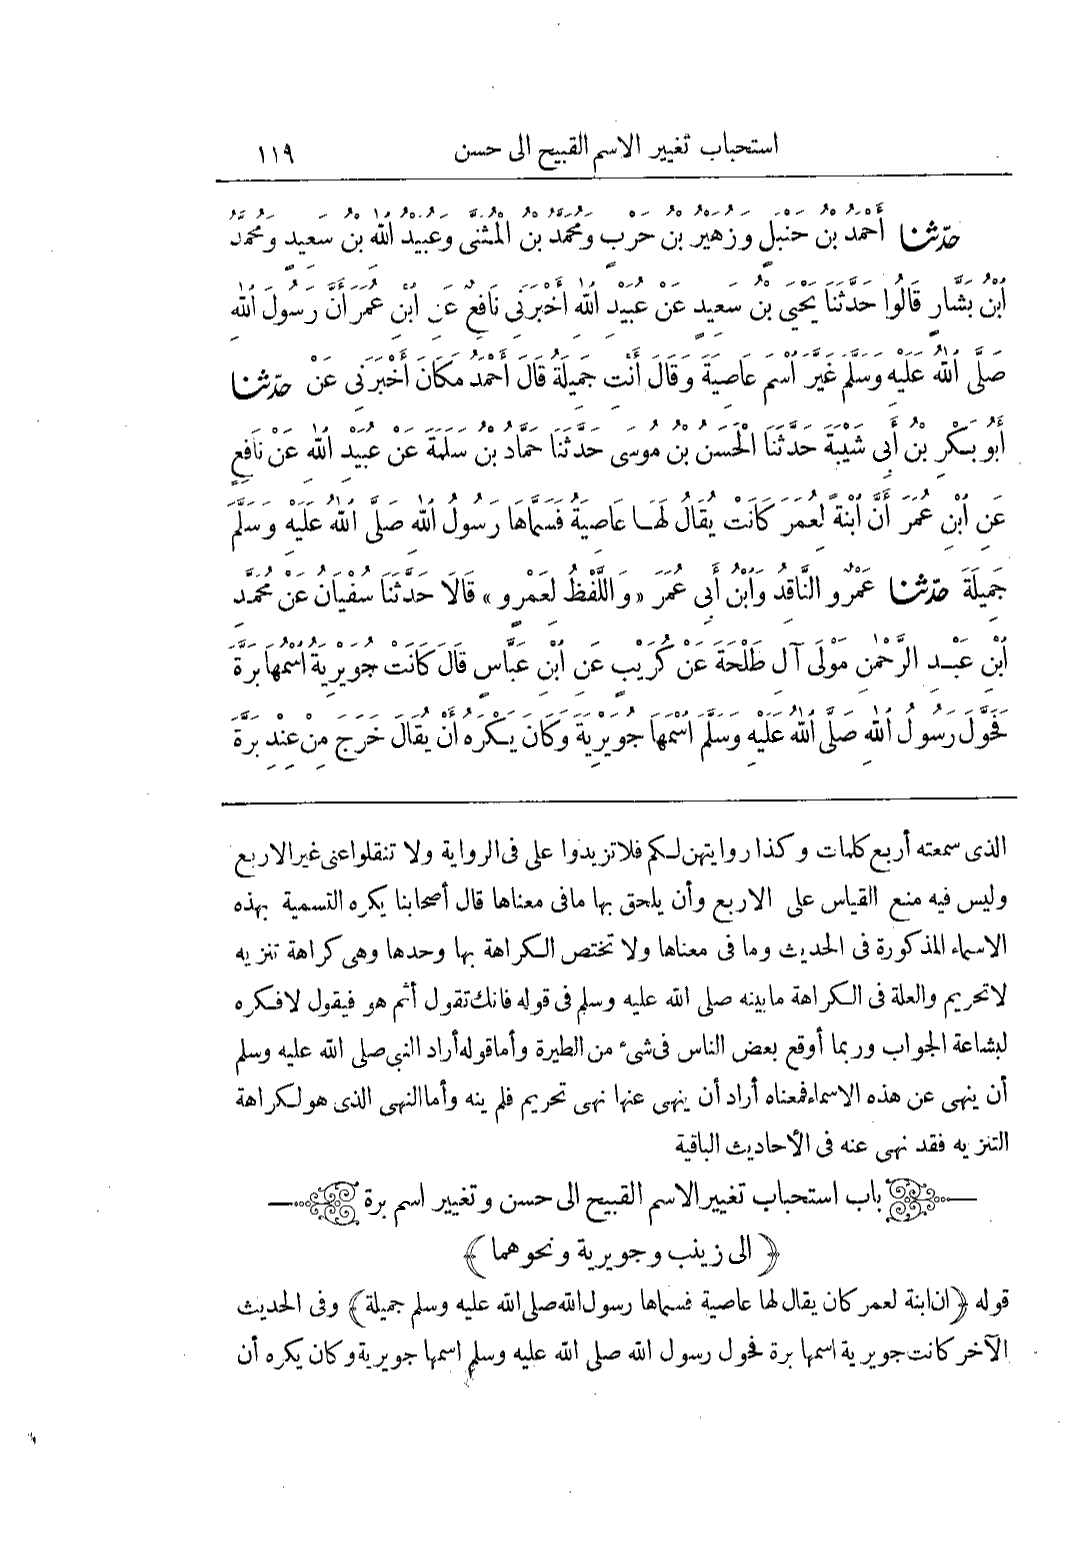 استحباب تغيير الاسم القبيح الى حسن ١١٩
حدّثنا أَحْمَدُ بْنُ حَنْبَلٍ وَزُهَيْرُ بْنُ حَرْبٍ وَمُحَمَّدُ بْنُ الْمُثَنَّى وَعُبَيْدُ اللهِ بْنُ سَعِيدٍ وَمُحَمَّدُ
ابْنُ بَشَّارٍ قَالُوا حَدَّثَنَا يَحْيَى بْنُ سَعِيدٍ عَنْ عُبَيْدِ اللهِ أَخْبَرَنِى نَافِعٌ عَنِ ابْنِ عُمَرَ أَنَّ رَسُولَ اللهِ
صَلَّى اللهُ عَلَيْهِ وَسَلَّمَ غَيَّرَ اسْمَ عَاصِيَةَ وَقَالَ أَنْتِ جَمِيلَةُ قَالَ أَحْمَدُ مَكَانَ أَخْبَرَنِى عَنْ حدّثنا
أَبُو بَكْرِ بْنُ أَبِى شَيْبَةَ حَدَّثَنَا الْحَسَنُ بْنُ مُوسَى حَدَّثَنَا حَمَّادُ بْنُ سَلَمَةَ عَنْ عُبَيْدِ اللهِ عَنْ نَافِعٍ
عَنِ ابْنِ عُمَرَ أَنَّ ابْنَةً لِعُمَرَ كَانَتْ يُقَالُ لَهَا عَاصِيَةُ فَسَمَّاهَا رَسُولُ اللهِ صَلَّى اللهُ عَلَيْهِ وَسَلَّمَ
جَمِيلَةَ حدّثنا عَمْرٌو النَّاقِدُ وَابْنُ أَبِى عُمَرَ «وَاللَّفْظُ لِعَمْرٍو» قَالَا حَدَّثَنَا سُفْيَانُ عَنْ مُحَمَّدِ
ابْنِ عَبْدِ الرَّحْمٰنِ مَوْلَى آلِ طَلْحَةَ عَنْ كُرَيْبٍ عَنِ ابْنِ عَبَّاسٍ قَالَ كَانَتْ جُوَيْرِيَةُ اسْمُهَا بَرَّةُ
فَحَوَّلَ رَسُولُ اللهِ صَلَّى اللهُ عَلَيْهِ وَسَلَّمَ اسْمَهَا جُوَيْرِيَةَ وَكَانَ يَكْرَهُ أَنْ يُقَالَ خَرَجَ مِنْ عِنْدِ بَرَّةَ
الذى سمعته أربع كلمات وكذا روايتهن لكم فلا تزيدوا على فى الرواية ولا تنقلوا عنى غير الاربع
وليس فيه منع القياس على الاربع وأن يلحق بها مافى معناها قال أصحابنا يكره التسمية بهذه
الاسماء المذكورة فى الحديث وما فى معناها ولا تختص الكراهة بها وحدها وهى كراهة تنزيه
لاتحريم والعلة فى الكراهة مابينه صلى الله عليه وسلم فى قوله فانك تقول أثم هو فيقول لافكره
لبشاعة الجواب وربما أوقع بعض الناس فى شىء من الطيرة وأما قوله أراد النبى صلى الله عليه وسلم
أن ينهى عن هذه الاسماء فمعناه أراد أن ينهى عنها نهى تحريم فلم ينه وأما النهى الذى هو لكراهة
التنزيه فقد نهى عنه فى الأحاديث الباقية
باب استحباب تغيير الاسم القبيح الى حسن وتغيير اسم برة
﴿ الى زينب وجويرية ونحوهما ﴾
قوله ﴿ان ابنة لعمر كان يقال لها عاصية فسماها رسول الله صلى الله عليه وسلم جميلة﴾ وفى الحديث
الآخر كانت جويرية اسمها برة فحول رسول الله صلى الله عليه وسلم اسمها جويرية وكان يكره أن